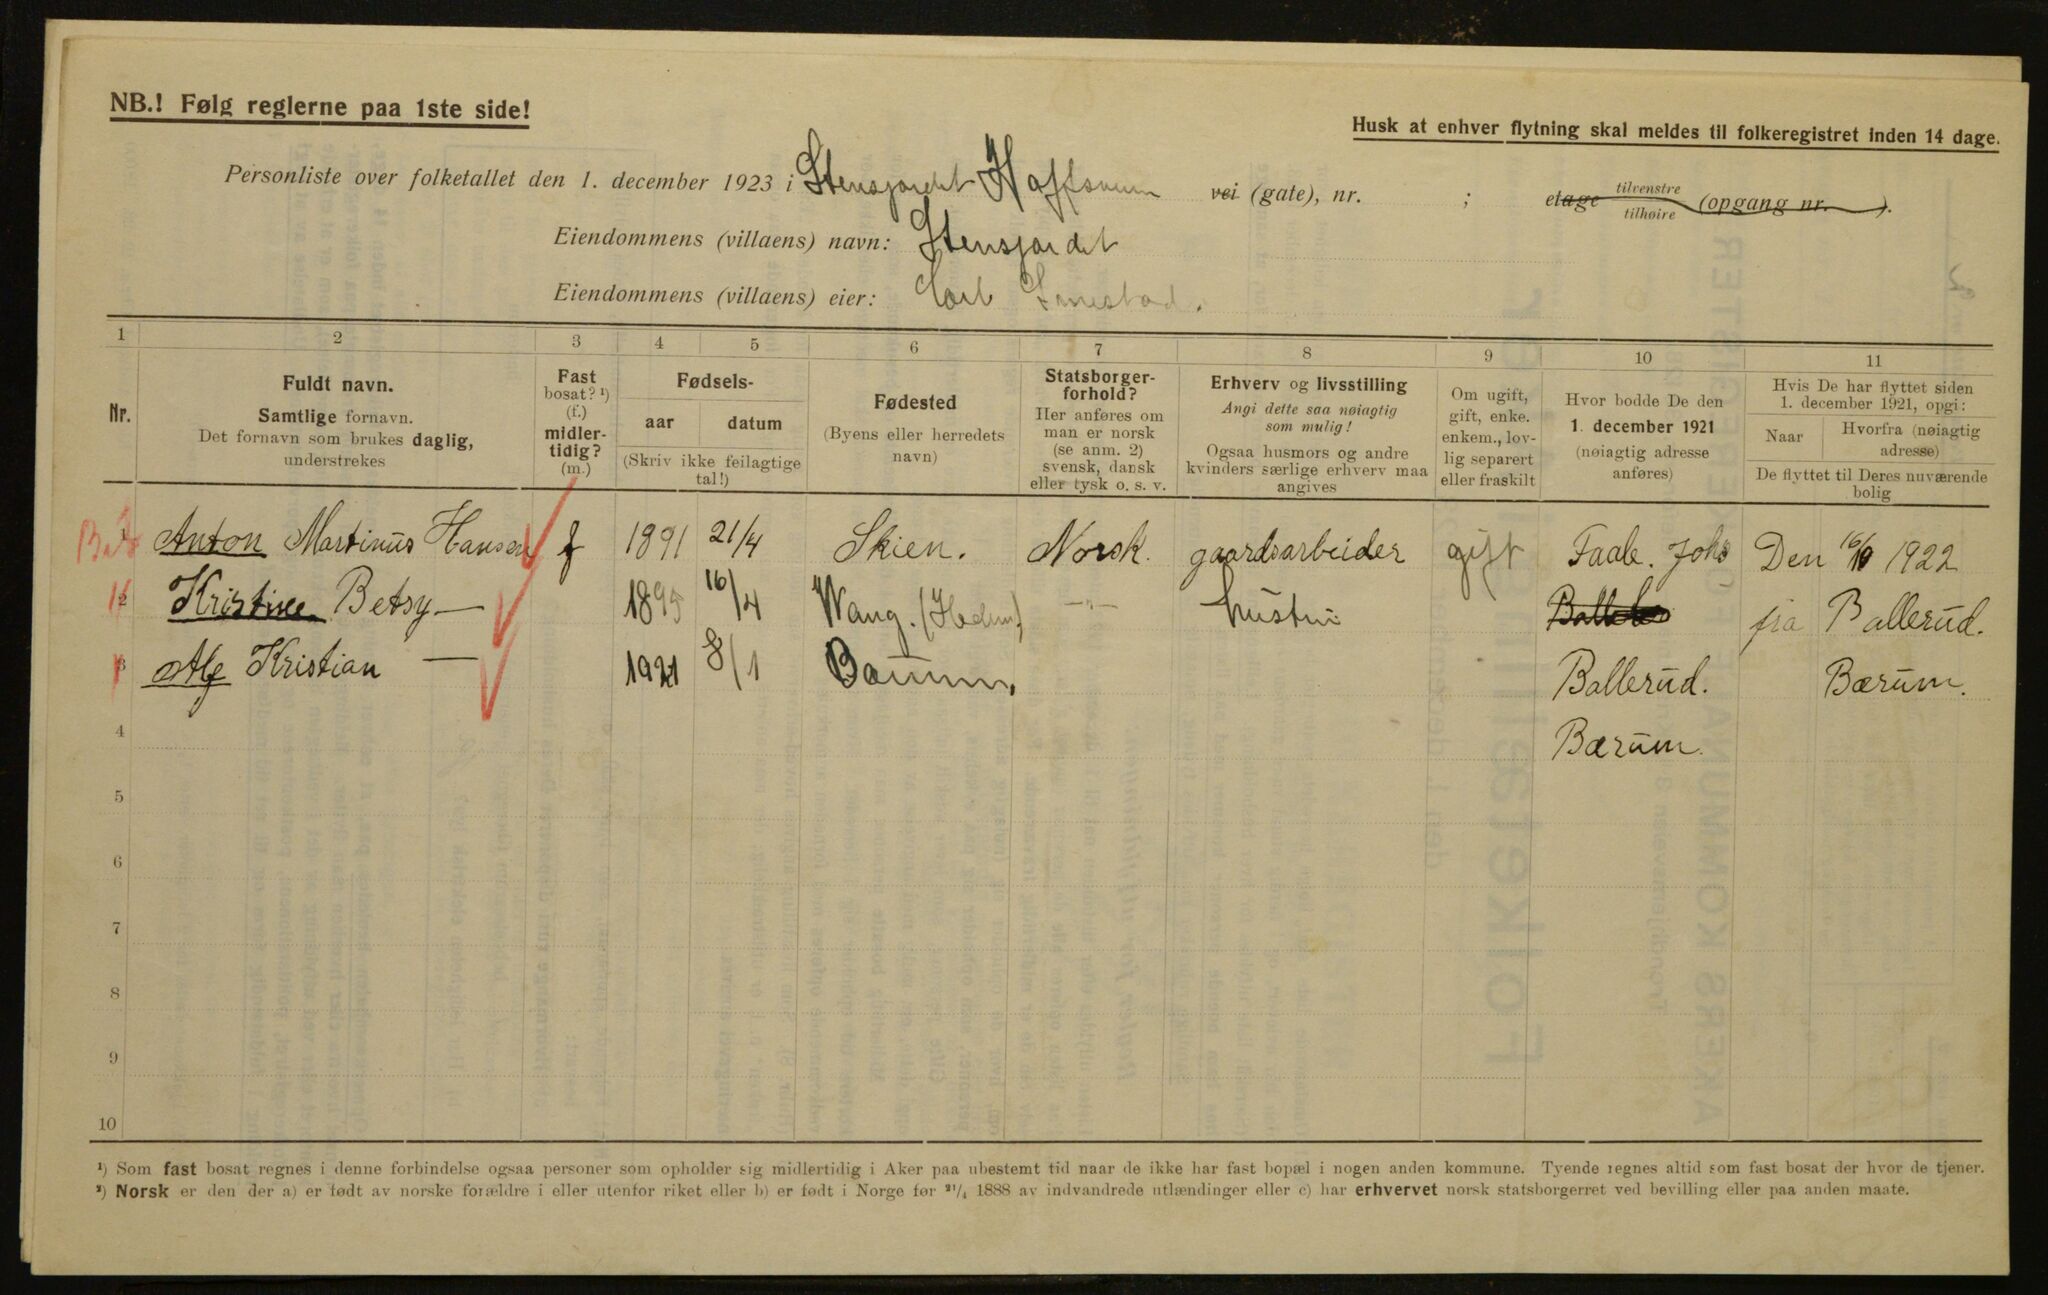 NB.! Følg reglerne paa 1ste side!
Husk at enhver flytning skal meldes til folkeregistret inden 14 dage.
Personliste over folketallet den 1. december 1923 i Stensjordet vei (gate), nr. ; etage tilvenstre tilhøire (opgang nr. ).
Eiendommens (villaens) navn: Stensjordet
Eiendommens (villaens) eier: Carl
1 2 3 4 5 6 7 8 9 10 11
Nr.
Fuldt navn.
Samtlige fornavn.
Det fornavn som brukes daglig,
understrekes
Fast
bosat? ¹)
(f.)
midler-
tidig?
(m.)
Fødsels-
aar datum
(Skriv ikke feilagtige
tal!)
Fødested
(Byens eller herredets
navn)
Statsborger-
forhold?
Her anføres om
man er norsk
(se anm. 2)
svensk, dansk
eller tysk o. s. v.
Erhverv og livsstilling
Angi dette saa nøiagtig
som mulig!
Ogsaa husmors og andre
kvinders særlige erhverv maa
angives
Om ugift,
gift, enke.
enkem., lov-
lig separert
eller fraskilt
Hvor bodde De den
1. december 1921
(nøiagtig adresse
anføres)
Hvis De har flyttet siden
1. december 1921, opgi:
Naar
Hvorfra (nøiagtig
adresse)
De flyttet til Deres nuværende
bolig
1 Anton Martinus Hansen f 1891 21/4 Skien. Norsk. gaardsarbeider gift Faale. Johs Den 16/10 1922
2 Kristine Betsy — 1895 16/4 Wang. (Hedm.) —"— hustru fra Ballerud.
3 Alf Kristian — 1921 8/1 Bærum. Ballerud. Bærum.
4 Bærum.
5
6
7
8
9
10
¹) Som fast bosat regnes i denne forbindelse ogsaa personer som opholder sig midlertidig i Aker paa ubestemt tid naar de ikke har fast bopæl i nogen anden kommune. Tyende regnes altid som fast bosat der hvor de tjener.
²) Norsk er den der a) er født av norske forældre i eller utenfor riket eller b) er født i Norge før ²¹/₄ 1888 av indvandrede utlændinger eller c) har erhvervet norsk statsborgerret ved bevilling eller paa anden maate.